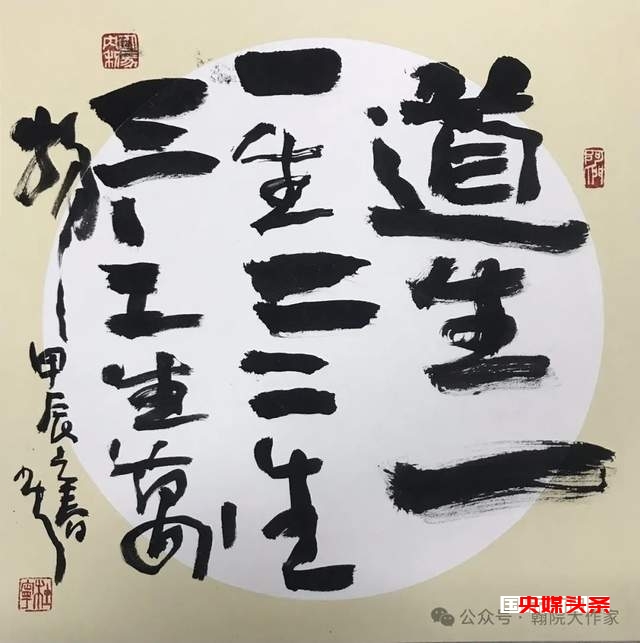 道生一
一生二二生
三三生萬
物
甲辰之春
杜寧
国央媒头条
公众号·翰院大作家